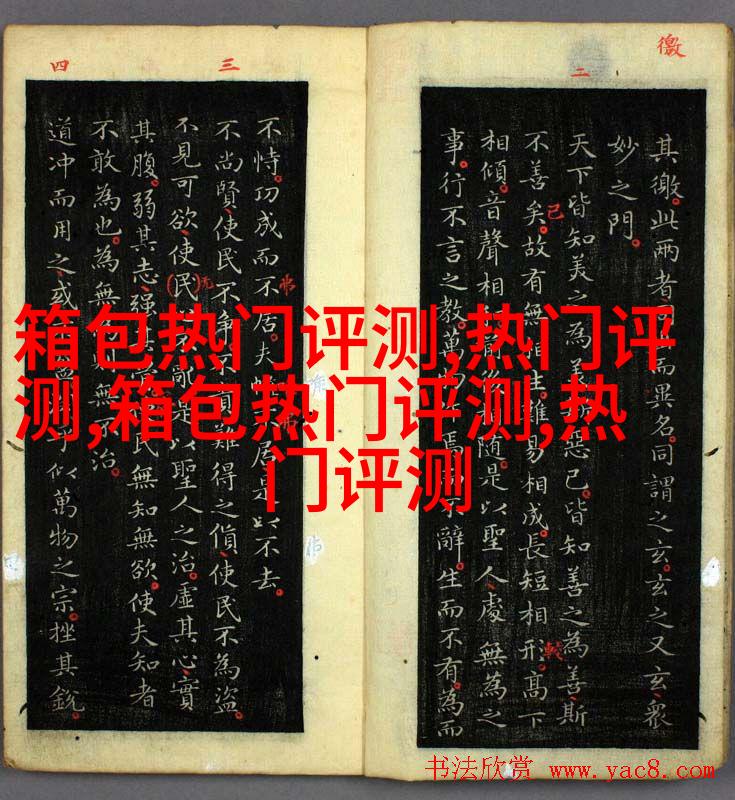 徼
二
其徼此两者
而異名同謂之玄玄之又玄衆
妙之門
天下皆知美之為美
惡已皆知善之為善斯
不善矣故有無
生難易相成長短相形高下
已
較
相傾音聲相
随是以聖人處無為之
事行不言之教萬
焉
不辭生而不有為而
三
四
不恃功成而不居夫
居是以不去
不尚賢使民不争
難得之貨使民不為盜
不見可欲使民
亂是以聖人之治虛其心實
无
其腹弱其志强其
民無知無欲使夫知者
不敢為也為無
無不治
道冲而用之或
乎似萬物之宗挫其銳
箱包热门评测,热门评
测,箱包热门评测,热
门评测
书法欣赏 www.yac8.com